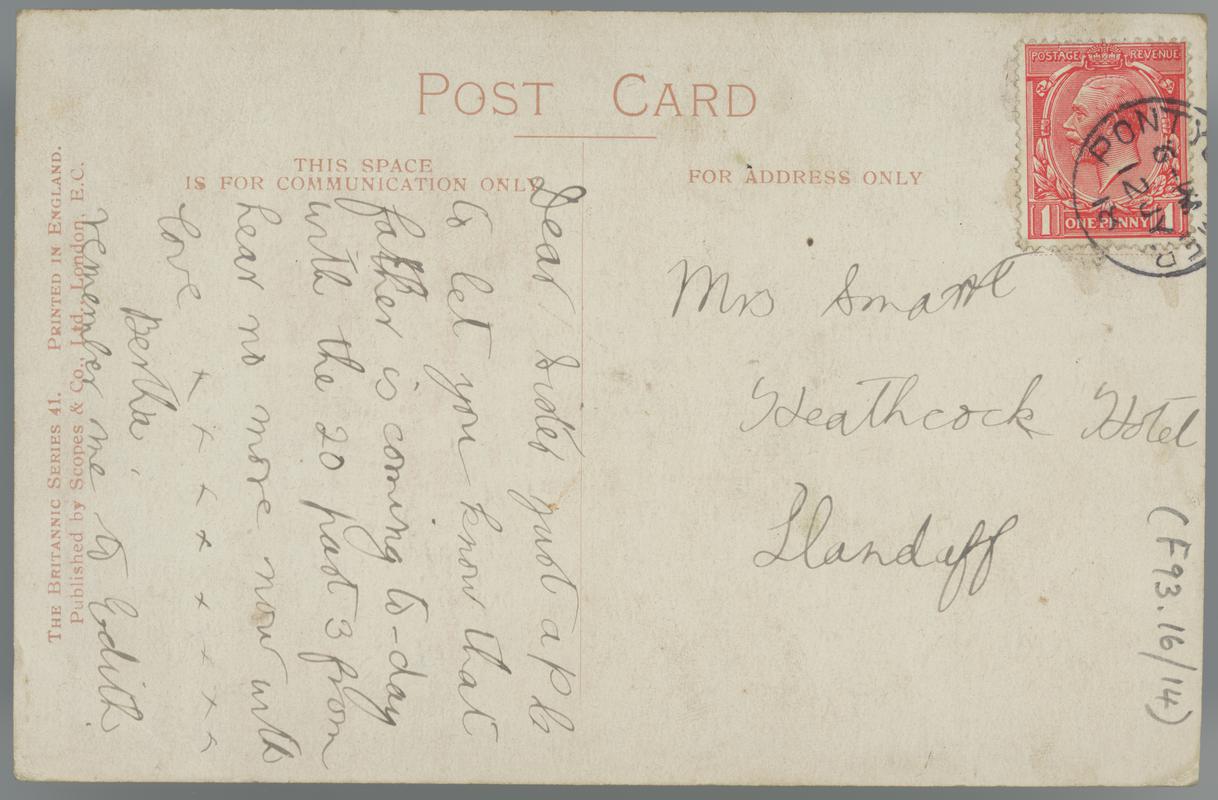 POST CARD
THIS SPACE
IS FOR COMMUNICATION ONLY
FOR ADDRESS ONLY
POSTAGE REVENUE
1 ONE PENNY 1
Dear Sister just a P C
to let you know that
father is coming to-day
with the 20 past 3 from
hear no more now with
love x x x x x x x x
Bertha.
remember me to Edith.
Mrs Smart
Heathcock Hotel
Llandaff
(F93.16/14)
THE BRITANNIC SERIES 41. PRINTED IN ENGLAND.
Published by Scopes & Co., Ltd., London, E.C.